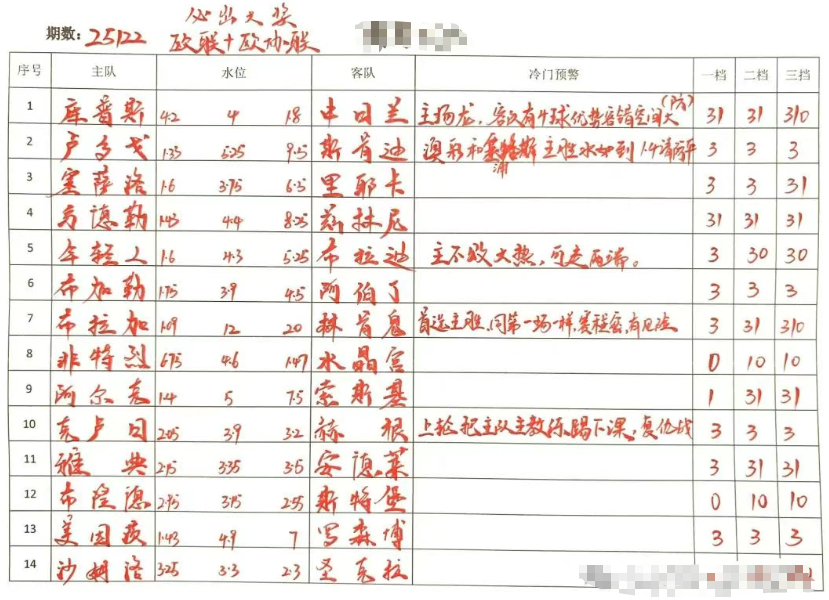 必出大奖
期数：25122 欧联+欧协联
序号 主队 水位 客队 冷门预警 一档 二档 三挡
1 库普斯 4.2 4 1.8 中日兰 主场龙，客队有4球优势容错空间大(防) 31 31 310
2 卢多戈 1.33 5.25 9.5 斯肯迪 3 3 3
3 塞萨洛 1.6 3.75 6.5 里耶卡 3 3 31
4 方德勒 1.43 4.4 8.25 兹林尼 31 31 31
5 年轻人 1.6 4.3 5.25 布拉迪 主不败大热，可走两端。 3 30 30
6 布加勒 1.75 3.9 4.5 阿伯丁 3 3 3
7 布拉加 1.09 12 20 林肯鬼 首选主胜，同第一场一样，赛程密，有风险 3 31 310
8 非特烈 6.75 4.6 1.47 水晶宫 0 10 10
9 阿尔克 1.4 5 7.5 索斯基 1 31 31
10 克卢日 2.05 3.9 3.2 赫根 上轮把主队主教练踢下课，复仇战 3 3 3
11 雅典 2.15 3.35 3.5 安德莱 3 31 31
12 布隆德 2.45 3.15 2.55 斯特堡 0 10 10
13 美因茨 1.43 4.9 7 罗森博 3 3 3
14 沙姆洛 3.25 3.3 2.3 圣克拉